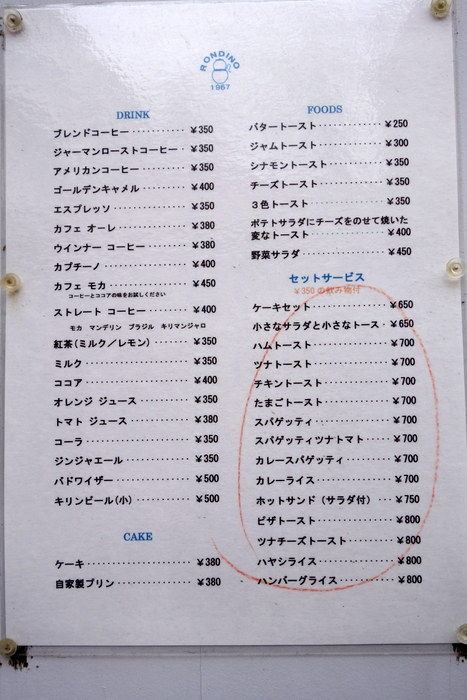 RONDINO
1967
DRINK
ブレンドコーヒー ¥350
ジャーマンローストコーヒー ¥350
アメリカンコーヒー ¥350
ゴールデンキャメル ¥400
エスプレッソ ¥350
カフェ オーレ ¥380
ウインナー コーヒー ¥380
カプチーノ ¥400
カフェ モカ ¥450
コーヒーとココアの味をお試しください
ストレート コーヒー ¥400
モカ マンデリン ブラジル キリマンジャロ
紅茶(ミルク/レモン) ¥350
ミルク ¥350
ココア ¥400
オレンジ ジュース ¥350
トマト ジュース ¥380
コーラ ¥350
ジンジャエール ¥350
バドワイザー ¥500
キリンビール(小) ¥500
CAKE
ケーキ ¥380
自家製プリン ¥380
FOODS
バタートースト ¥250
ジャムトースト ¥300
シナモントースト ¥350
チーズトースト ¥350
3色トースト ¥350
ポテトサラダにチーズをのせて焼いた
変なトースト ¥400
野菜サラダ ¥450
セットサービス
¥350 の飲み物付
ケーキセット ¥650
小さなサラダと小さなトースト ¥650
ハムトースト ¥700
ツナトースト ¥700
チキントースト ¥700
たまごトースト ¥700
スパゲッティ ¥700
スパゲッティツナトマト ¥700
カレースパゲッティ ¥700
カレーライス ¥700
ホットサンド(サラダ付) ¥750
ピザトースト ¥800
ツナチーズトースト ¥800
ハヤシライス ¥800
ハンバーグライス ¥800